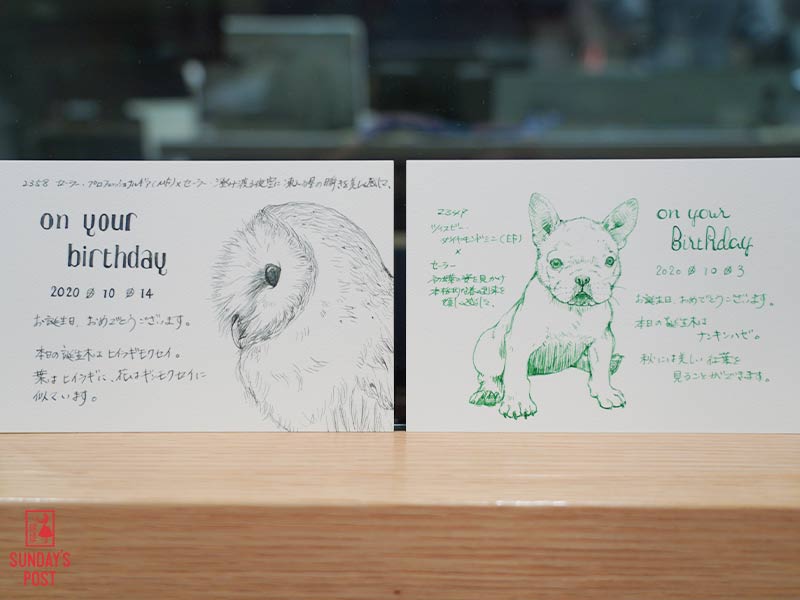 2358 セーラー・プロフェッショナルギア(MF)×セーラー 凍み渡る夜空に凍る星の瞬きを美しく感じて、
on your
birthday
2020 10 14
お誕生日、おめでとうございます。
本日の誕生木はヒイラギモクセイ。
葉はヒイラギに、花はギンモクセイに
似ています。
2349
ツイスビー・
ダイヤモンドミニ(EF)
×
セーラー
を見かけ
本格的な春の到来を
嬉しく感じて、
on your
BirthDay
2020 10 3
お誕生日、おめでとうございます。
本日の誕生木は
ナンキンハゼ。
秋には美しい紅葉を
見ることができます。
SUNDAY'S
POST